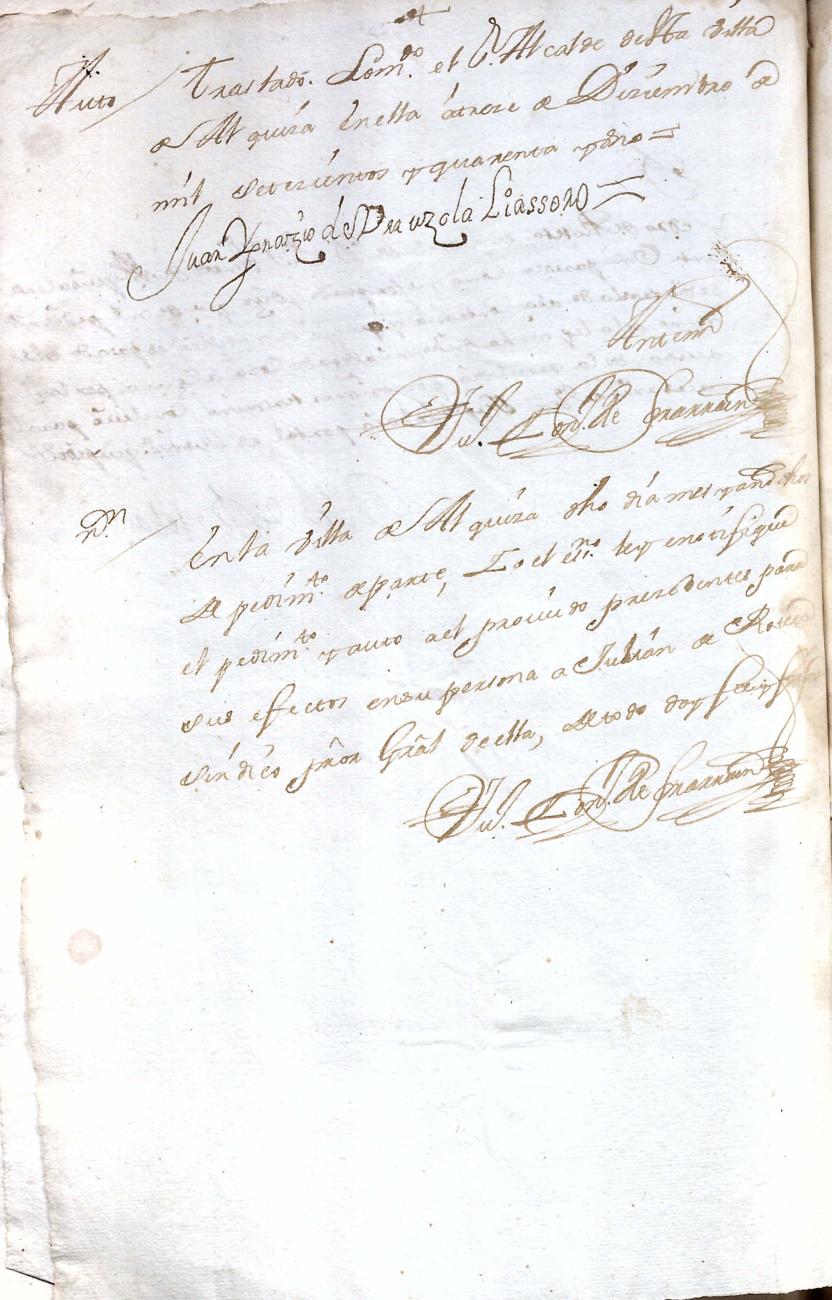 Auto / Traslado. Lom.do el S.r Alcalde desta villa
de Alquiza en ella a treze de Diziembre de
mil setezientos y quarenta y ocho =
Juan Ygnazio de Yrauzola Liassoro
Ante mi
Fu.co Ant.o de Ynarrain
n.on / En la villa de Alquiza dho dia mes y año dhos
de pedim.to de parte, Yo el es.no ley e notifique
el pedim.to y auto a el proueido prezedentes para
sus efectos en su persona a Julian de
sindico pror Gral de ella, de todo doy fee y
Fu.co Ant.o de Ynarrain